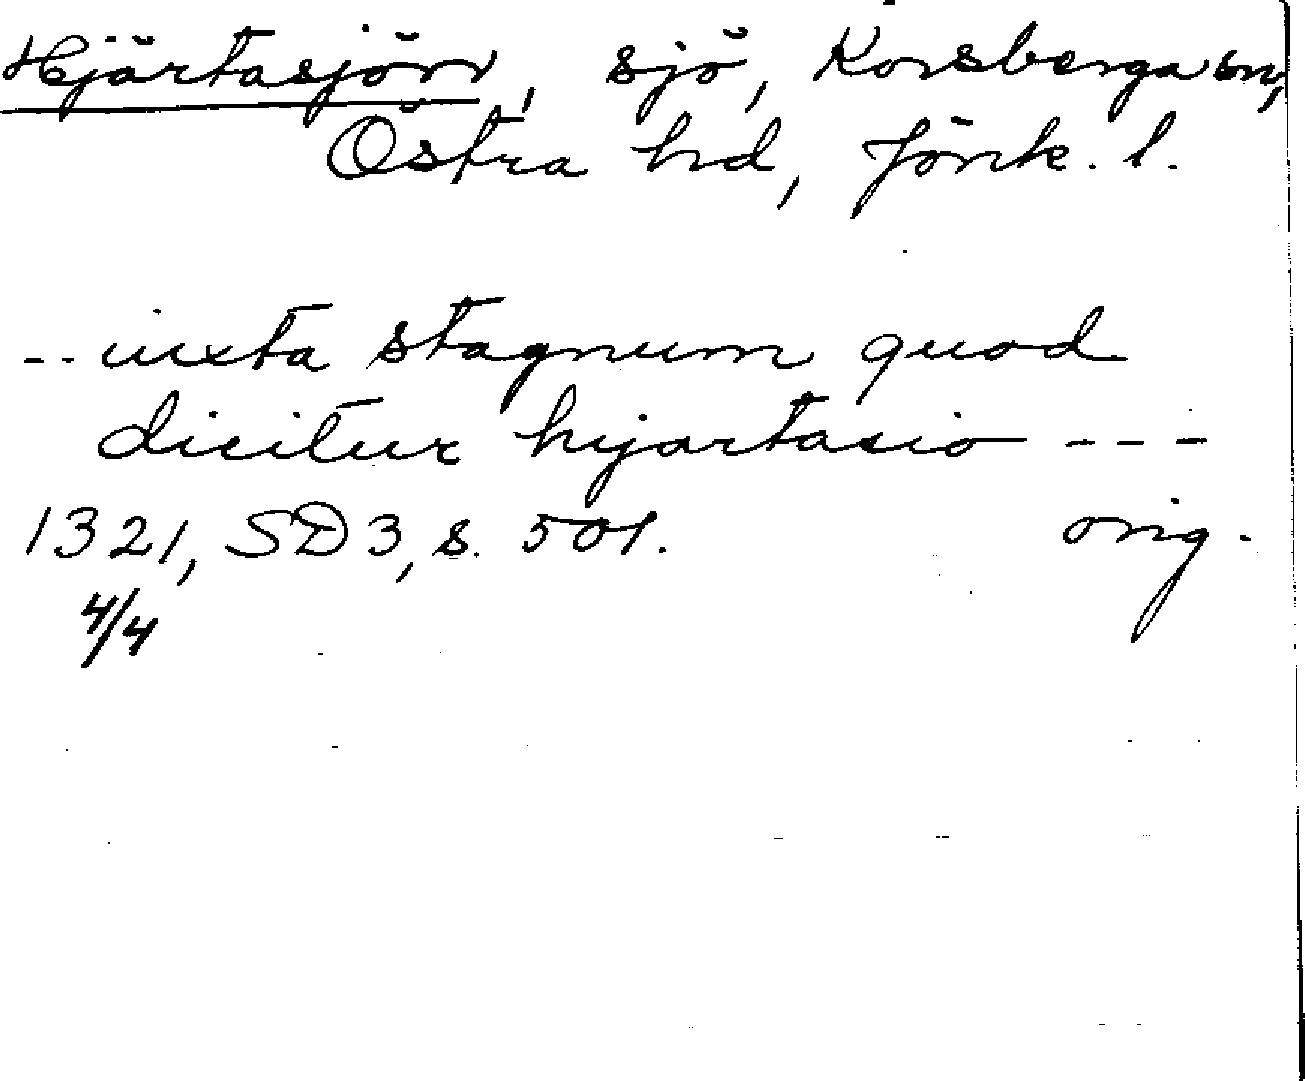 Hjärtasjön, sjö, Korsberga sn,
Östra hd, Jönk. l.
-- iuxta stagnum quod
dicitur hyartasio ---
1321, SD 3, s. 501. orig.
4/4